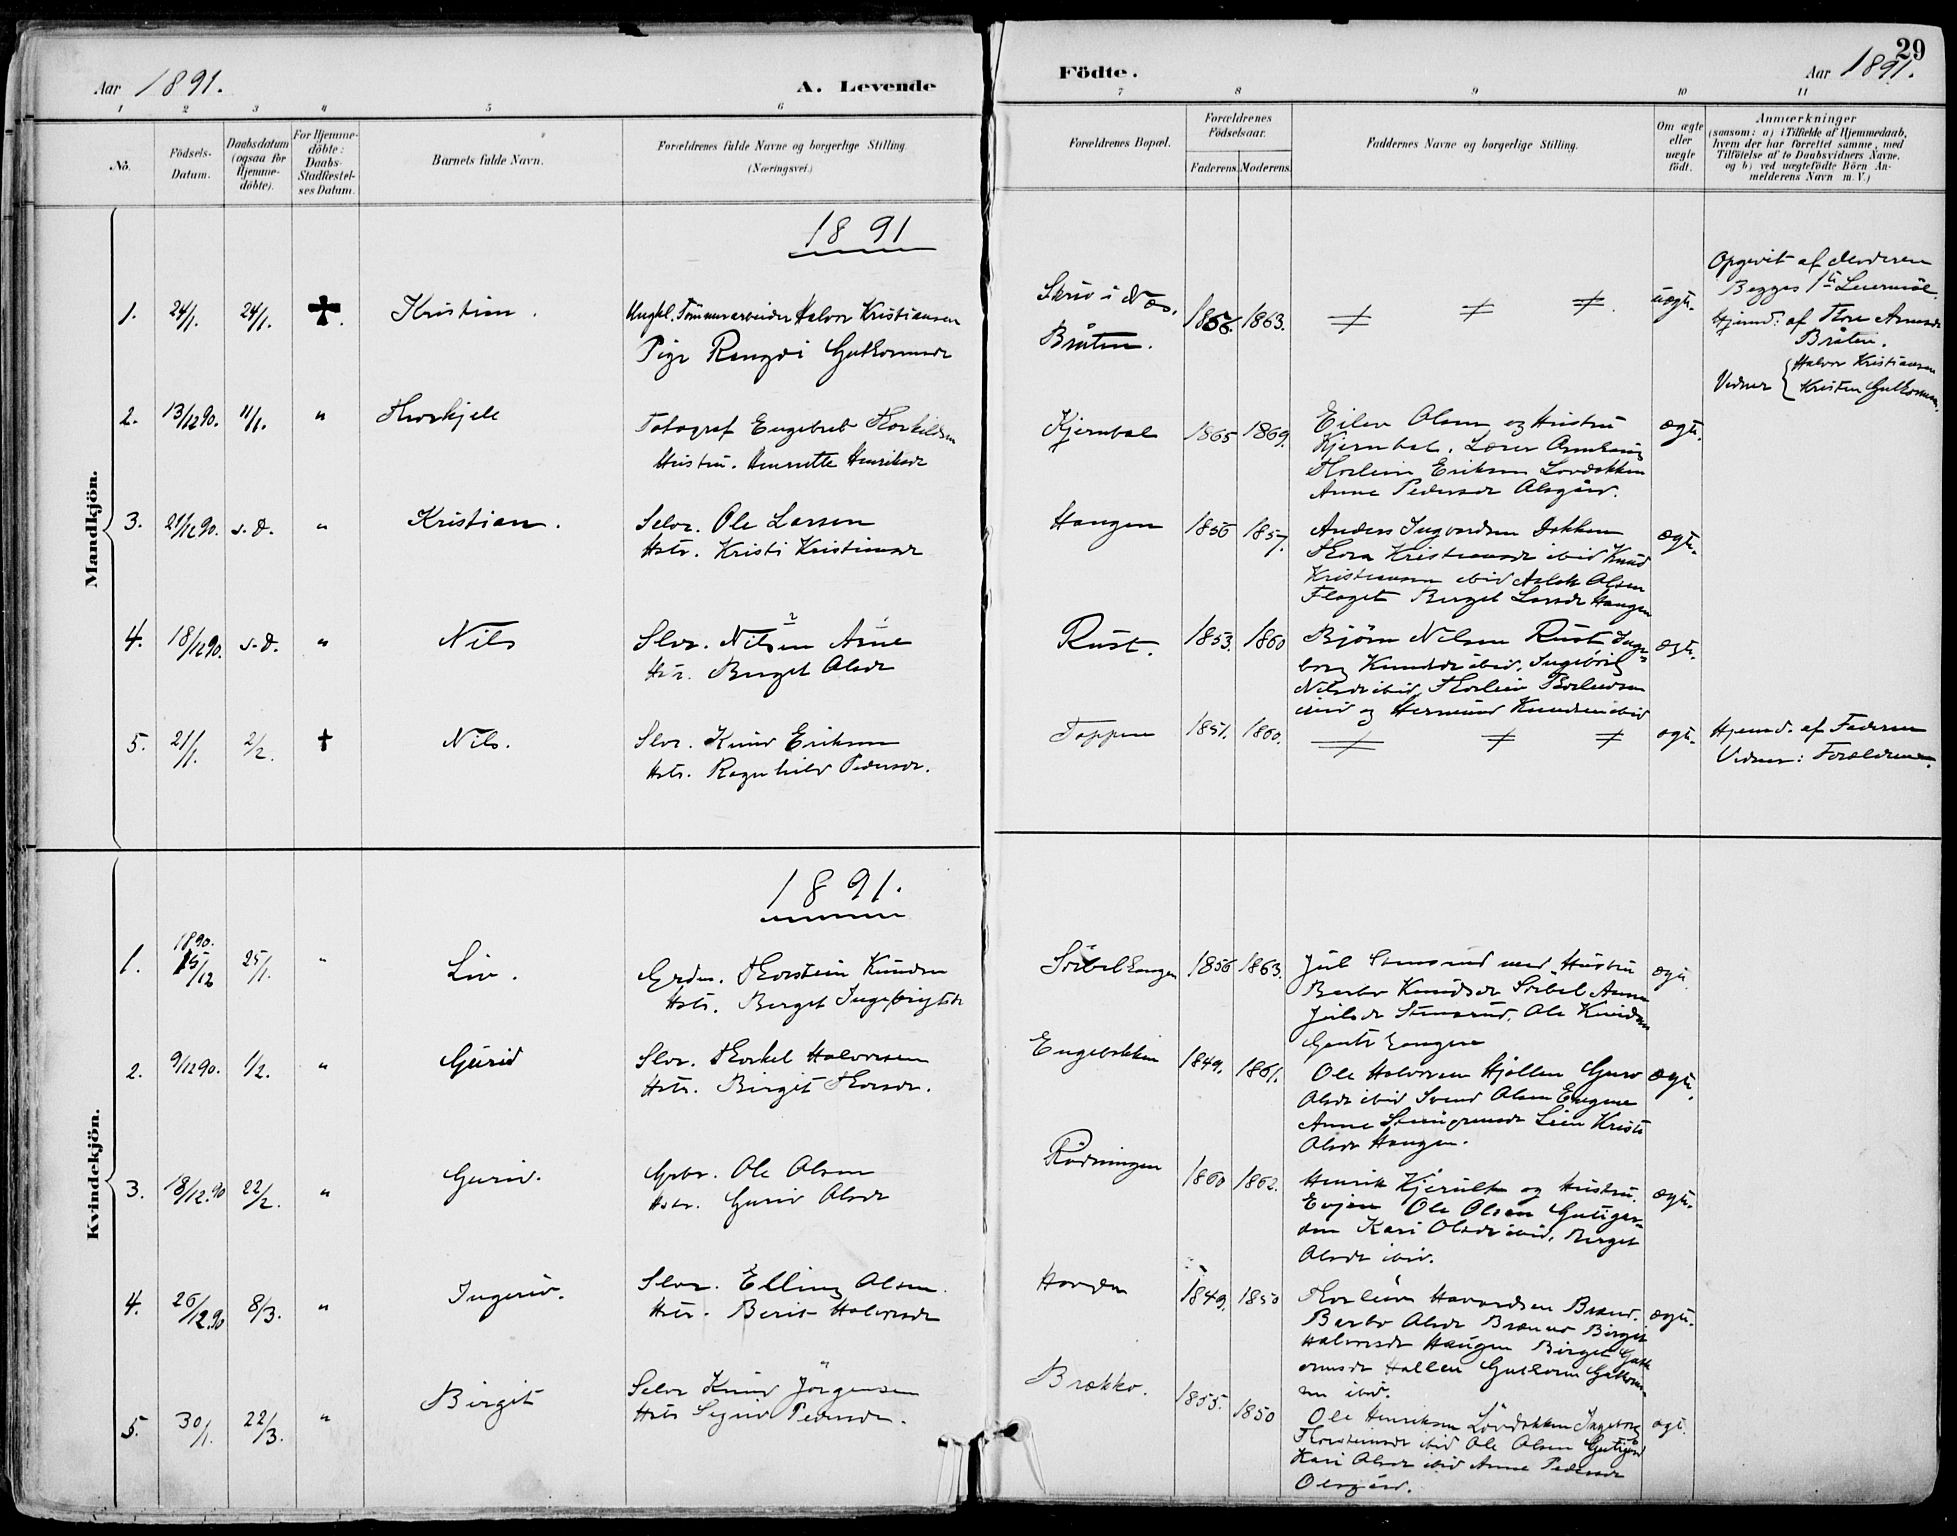 29
Aar 1891.
A. Levende
Födte.
Aar 1891.
1 2 3 4 5 6 7 8 9 10 11
No.
Födsels-
Datum.
Daabsdatum
(ogsaa for
Hjemme-
döbte).
For Hjemme-
döbte:
Daabs-
Stadfæstel-
ses Datum.
Barnets fulde Navn.
Forældrenes fulde Navne og borgerlige Stilling
(Næringsvei.)
Forældrenes Bopæl.
Forældrenes
Födselsaar.
Faderens. Moderens.
Faddernes Navne og borgerlige Stilling.
Om ægte
eller
uægte
födt.
Anmærkninger
(saasom: a) i Tilfælde af Hjemmedaab,
hvem der har forrettet samme, med
Tilföielse af to Daabsvidners Navne,
og b) ved uægtefödte Börn An-
melderens Navn m. V.)
Mandkjön.
1891
1. 24/1. 24/1. Kristian.
Ungkl. Tömmerarbeider Halvor Kristiansen
Pige Rangdi Guthormsdr
Skriv i Næs.
Bråten.
1856. 1863.
uægte.
Opgivet af Moderen
Begges 1ste Leiermål.
Hjemd. af Thore Arnesdr
Bråten.
Vidner Halvor Kristiansen
Kristen Guthormsen.
2. 13/12 90. 11/1. " Thorkjell
Fotograf Engebret Thorkildsen
Hustru. Henriette Henriksdr
Kjernbal 1865 1869.
Eilev Olsen og Hustru
Kjernbal. Lærer
Thorleiv Eriksen Lovdokken
Anne Pedersdr Alsgård.
ægte.
3. 21/12 90. s.d. " Kristian.
Selv. Ole Larsen
Hstr. Kristi Kristiansdr
Haugen 1856 1857.
Anders Ingvardsen Dokken
Thora Kristiansdr ibid Knud
Kristiansen ibid Aslak Olsen
Flaget Berget Larsdr Haugen
ægte.
4. 18/12 90. s.d. " Nils
Slvr. Nilsen Arne
Hstr. Berget Olsdr
Rust. 1853. 1860
Björn Nilsen Rust Inge-
borg Knudsdr ibid. Ingebörg
Nilsdr ibid, Thorleiv
ibid og Hermund Knudsen ibid
ægte.
5. 21/1. 2/2. Nils.
Slvr. Knud Eriksen
Hstr. Ragnhild Pedersdr.
Toppen 1851. 1860.
ægte.
Hjemd. af Faderen
Vidner: Forældrene.
Kvindekjön.
1891.
1. 1890. 15/12 25/1. " Liv.
Thorstein Knudsen
Hstr. Berget Ingebrigtsdr
1856 1863.
Jul Stensrud med Hustru
Barbo Knudsdr Sörbel Anne
Julsdr Stensrud. Ole Knudsen
ægte.
2. 9/12 90. 1/2. " Gurid
Slvr. Thorkel Halvorsen
Hstr. Birgit Thorsdr.
1849. 1861.
Ole Halvorsen Hjallen Guro
Olsdr ibid Svend Olsen Engene
Anne Steingrimsdr Lien Kristi
Olsdr Haugen.
ægte.
3. 18/12.90 22/2. " Gurid.
Grbr. Ole Olsen
Hstr. Gurid Olsdr
Rödningen 1860 1862.
Henrik Kjerulf og Hustru.
Evjen Ole Olsen Gutigar-
den Kari Olsdr ibid. Berget
Olsdr ibid.
ægte.
4. 26/12.90 8/3. " Ingerid.
Slvr. Elling Olsen.
Hstr. Berit Halvorsdr
Hovden 1849. 1850
Thorleiv Havardsen Brænd.
Barbo Olsdr Brænd Birgit
Halvorsdr Haugen Birget Guth-
ormsdr Hallen Guthorm Guthorm-
sen ibid.
ægte.
5. 30/1. 22/3. " Birgit
Selvr Knud Jörgensen
Hstr Sigrid Pedersdr.
Brækko. 1855. 1850
Ole Henriksen Lövdokken Ingeborg
Thorsteinsdr ibid Ole Olsen Gutigård
Kari Olsdr ibid Anne Pedersdr
Olsgård.
ægt.